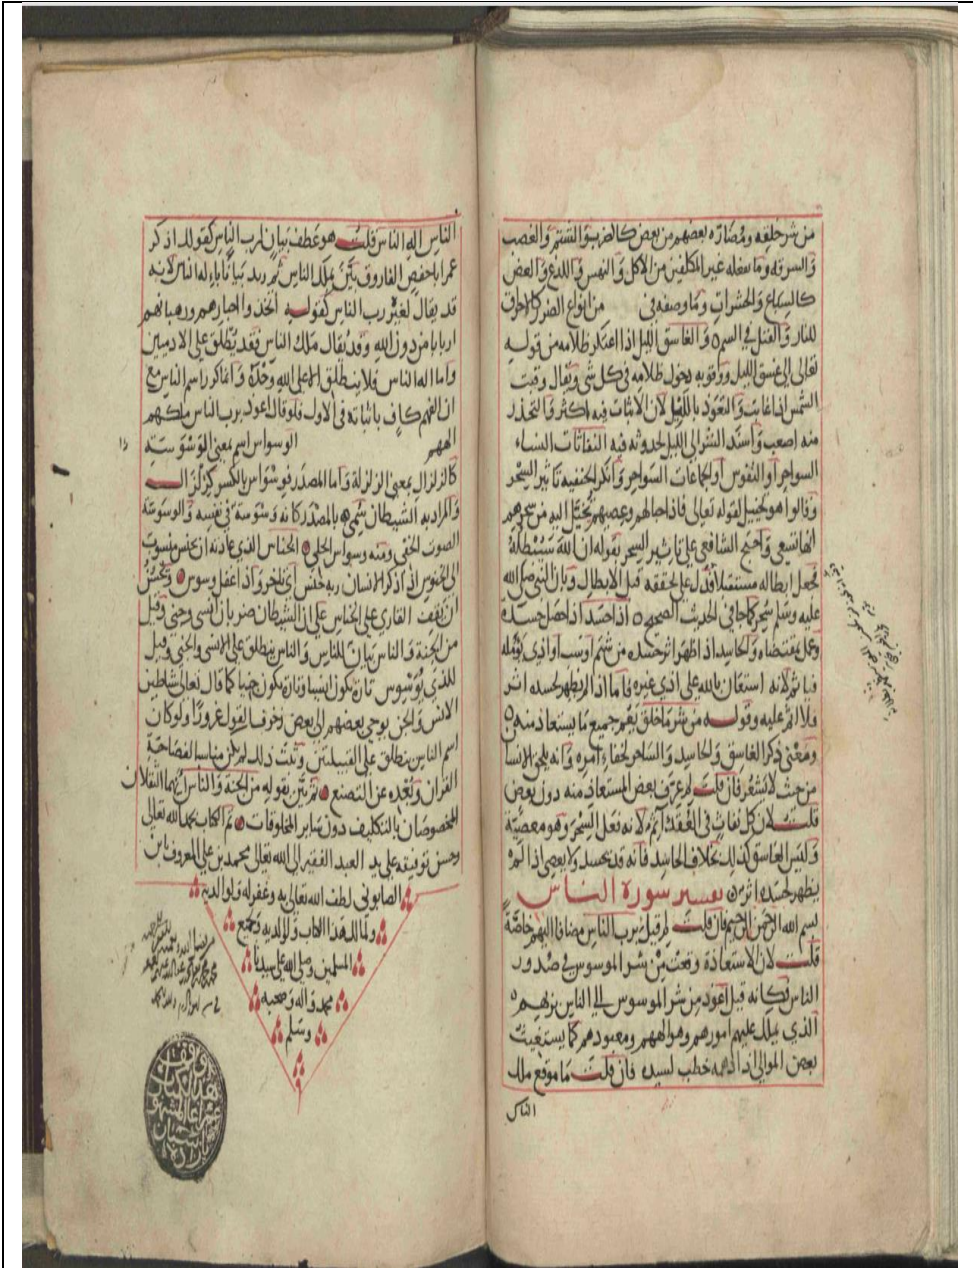 من شر خلقه ومضاره بعضهم من بعض كالضرب والشتم والغصب
والسرقه وما يفعله غير المكلفين من الاكل والنهس واللدغ والعض
كالسباع والحشرات وما وصفه في من انواع الضرر كالاحراق
للنار والقتل في السم والغاسق الليل اذا اعتكر ظلامه من قوله
تعالى الى غسق الليل ووقوبه دخول ظلامه في كل شي ويقال وقبت
الشمس اذا غابت والتعوذ بالليل لان الانبثاث فيه اكثر والتحذر
منه اصعب واسند الشر الى الليل لحدوثه فيه النفاثات النساء
السواحر او النفوس او الجماعات السواحر وانكر الحنفيه تاثير السحر
وقالوا هو تخييل لقوله تعالى فاذا حبالهم وعصيهم يخيل اليه من سحرهم
انها تسعى واحتج الشافعي على تاثير السحر بقوله ان الله سيبطله
فجعل ابطاله مستقبلا فدل على تحققه قبل الابطال وبان النبي صلى الله
عليه وسلم سحر كما جاء في الحديث الصحيح اذا حسد اذا حصل حسده
وعمل بمقتضاه والحاسد اذا ظهر اثر حسده من شتم او سب او اذى يوصله
فيأثم لانه استعان بالله على اذى غيره فاما اذا لم يظهر لحسده اثر
فلا اثم عليه وقوله من شر ما خلق يعم جميع ما يستعاذ منه
ومعنى ذكر الغاسق والحاسد والساحر لخفاء امره وانه يلحق الانسا
من حيث لا يشعر فان قلت لم عرف بعض المستعاذ منه دون بعض
قلت لان كل نفاث في العقد آثم لانه تعلى السحر وهو معصية
وليس الغاسق كذلك بخلاف الحاسد فانه قد يحسد ولا يعصي اذا لم
يظهر لحسده اثر تفسير سورة الناس
بسم الله الرحمن الرحيم فان قلت لم قيل برب الناس مضافا اليهم خاصة
قلت لان الاستعاذة وقعت من شر الموسوس في صدور
الناس فكانه قيل اعوذ من شر الموسوس الى الناس بربهم
الذي يملك عليهم امورهم وهو الههم ومعبودهم كما يستغيث
بعض الموالي اذا دهمه خطب لسيده فان قلت ما موقع ملك
الناس
الناس اله الناس قلت هو عطف بيان لرب الناس كقولك اذكر
عمر ابا حفص الفاروق بين بملك الناس ثم زيد بيانا باله الناس لانه
قد يقال لغيره رب الناس كقوله اتخذوا احبارهم ورهبانهم
اربابا من دون الله وقد يقال ملك الناس فقد يطلق على الادميين
واما اله الناس فلا ينطلق الا على الله وحده وانما كرر اسم الناس مع
ان الفهم كاف باثباته في الاول فلو قال اعوذ برب الناس ملكهم
الههم الوسواس اسم بمعنى الوسوسة
كالزلزال بمعنى الزلزلة واما المصدر فوسواس بالكسر كزلزال
والمراد به الشيطان سمي بالمصدر كانه وسوسة في نفسه والوسوسة
الصوت الخفي ومنه وسواس الحلي الخناس الذي عادته ان يخنس منسوب
الى الخنوس اذا ذكر الانسان ربه خنس اي تاخر واذا غفل وسوس ويحسن
ان يقف القاري على الخناس على ان الشيطان ضربان انسي وجني وقيل
من الجنة والناس بيان للناس والناس ينطلق على الانس والجن وقيل
للذي يوسوس تارة يكون انسيا وتارة يكون جنيا كما قال تعالى شياطين
الانس والجن يوحي بعضهم الى بعض زخرف القول غرورا ولو كان
اسم الناس ينطلق على القبيلتين وثبت ذلك لم يكن مناسبا لفصاحة
القران وبعده عن التصنع ثم بين بقوله من الجنة والناس انهما الثقلان
المخصوصان بالتكليف دون سائر المخلوقات تم الكتاب بحمد الله تعالى
وحسن توفيقه على يد العبد الفقير الى الله تعالى محمد بن علي المعروف بابن
الصابوني لطف الله تعالى به وغفر له ولوالديه
ولمالك هذا الكتاب ولوالديه وجميع
المسلمين وصلى الله على سيدنا
محمد واله وصحبه
وسلم